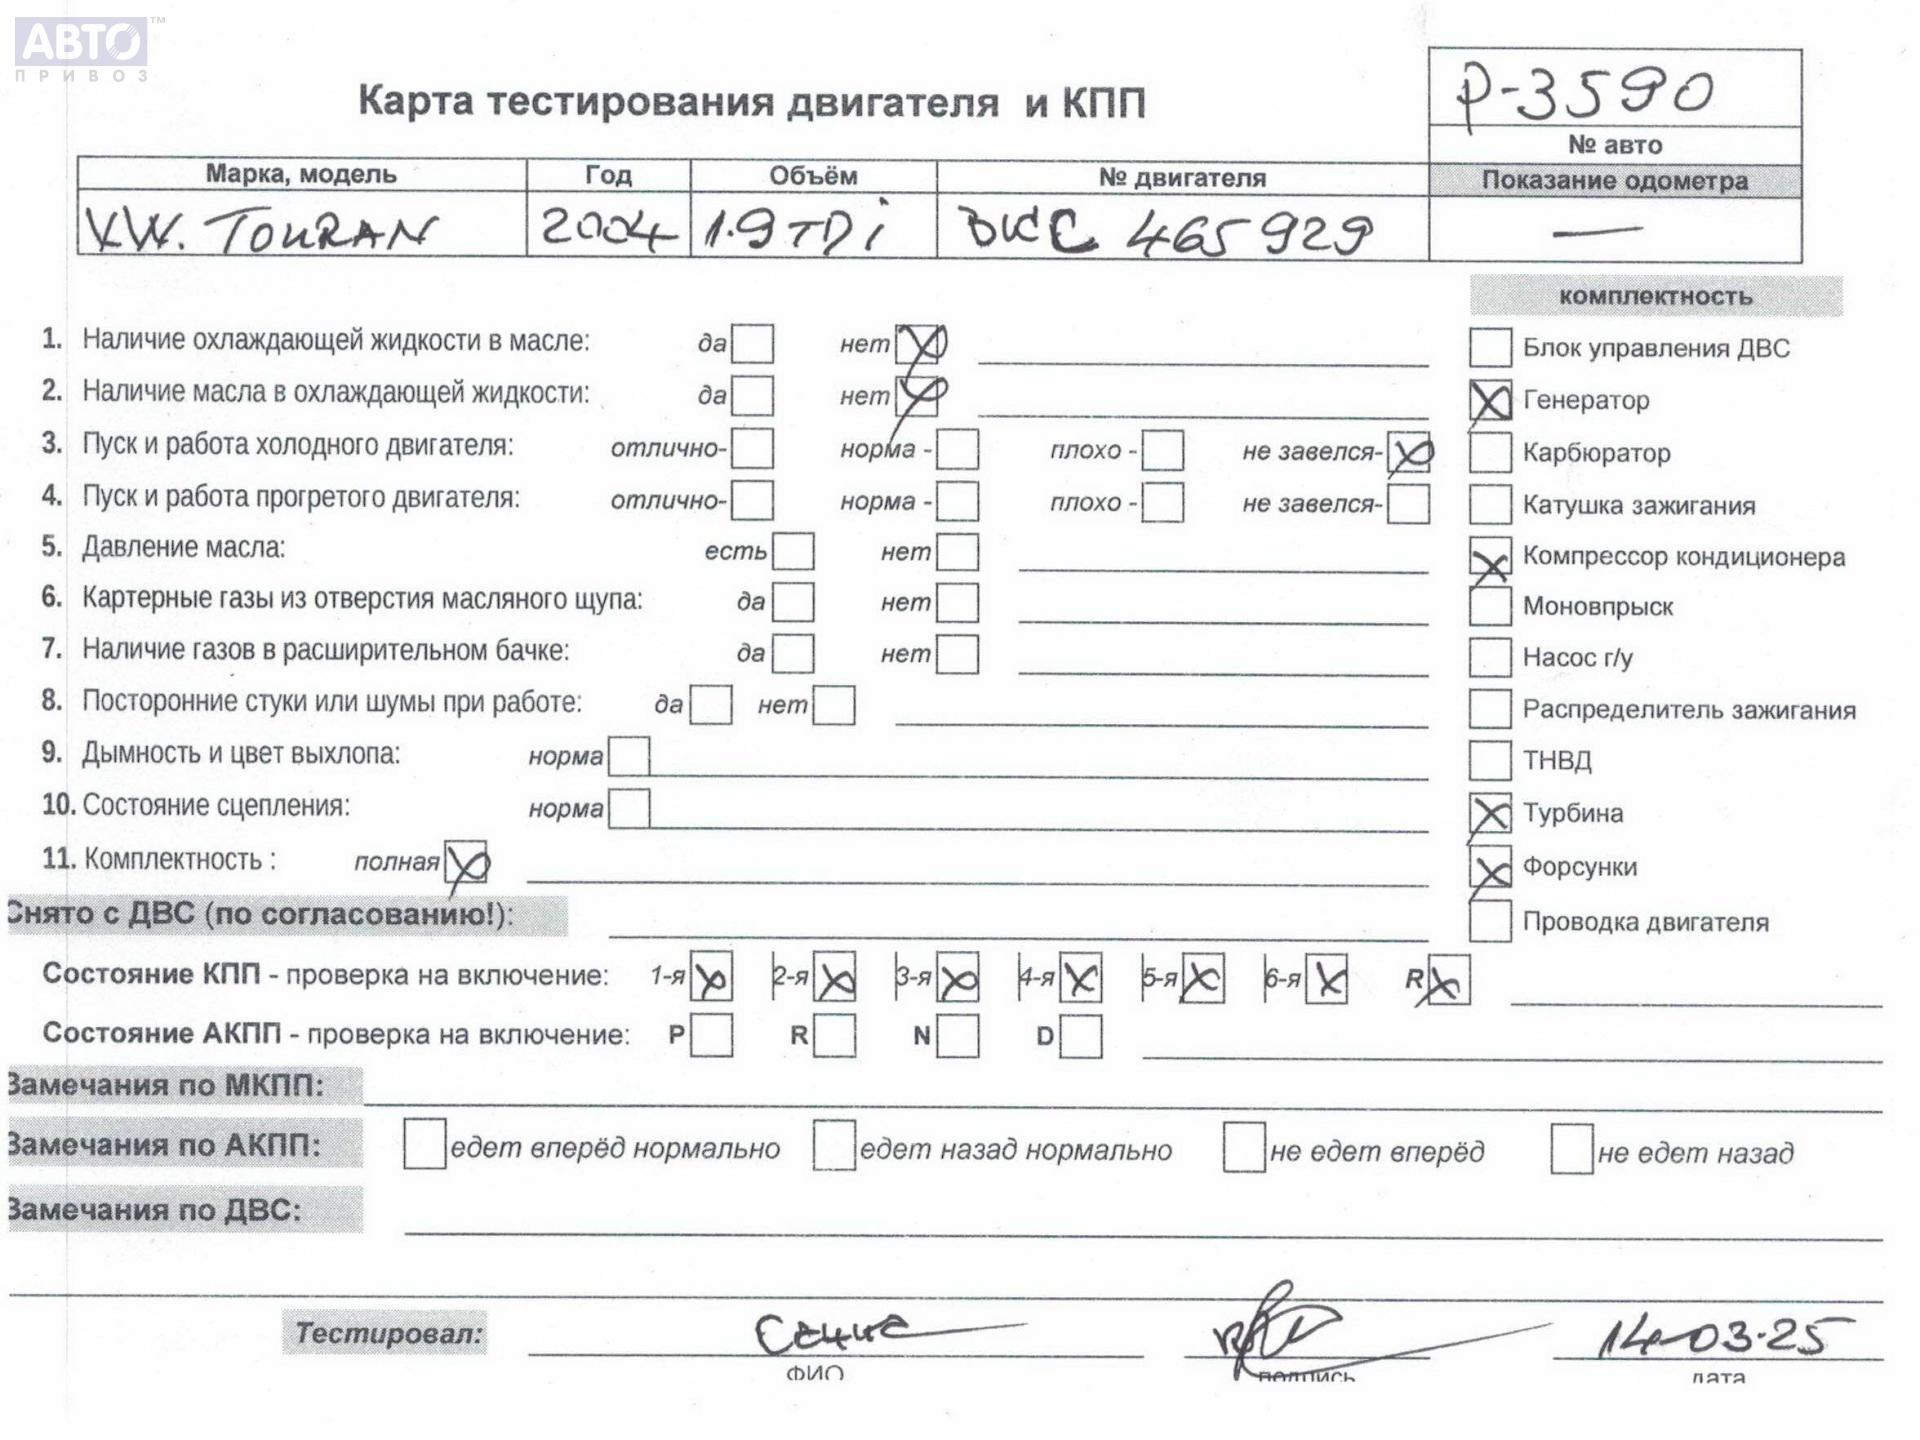 АВТО™
ПРИВОЗ
P-3590
Карта тестирования двигателя и КПП
№ авто
Марка, модель Год Объём № двигателя Показание одометра
VW. TOURAN 2004 1.9 TDi BKC 465929 —
комплектность
1. Наличие охлаждающей жидкости в масле: да нет
Блок управления ДВС
2. Наличие масла в охлаждающей жидкости: да нет
Генератор
3. Пуск и работа холодного двигателя: отлично- норма - плохо - не завелся-
Карбюратор
4. Пуск и работа прогретого двигателя: отлично- норма - плохо - не завелся-
Катушка зажигания
5. Давление масла: есть нет
Компрессор кондиционера
6. Картерные газы из отверстия масляного щупа: да нет
Моновпрыск
7. Наличие газов в расширительном бачке: да нет
Насос г/у
8. Посторонние стуки или шумы при работе: да нет
Распределитель зажигания
9. Дымность и цвет выхлопа: норма
ТНВД
10. Состояние сцепления: норма
Турбина
11. Комплектность : полная
Форсунки
Снято с ДВС (по согласованию!):
Проводка двигателя
Состояние КПП - проверка на включение: 1-я 2-я 3-я 4-я 5-я 6-я R
Состояние АКПП - проверка на включение: P R N D
Замечания по МКПП:
Замечания по АКПП: едет вперёд нормально едет назад нормально не едет вперёд не едет назад
Замечания по ДВС:
Тестировал: 14-03-25
ФИО подпись дата